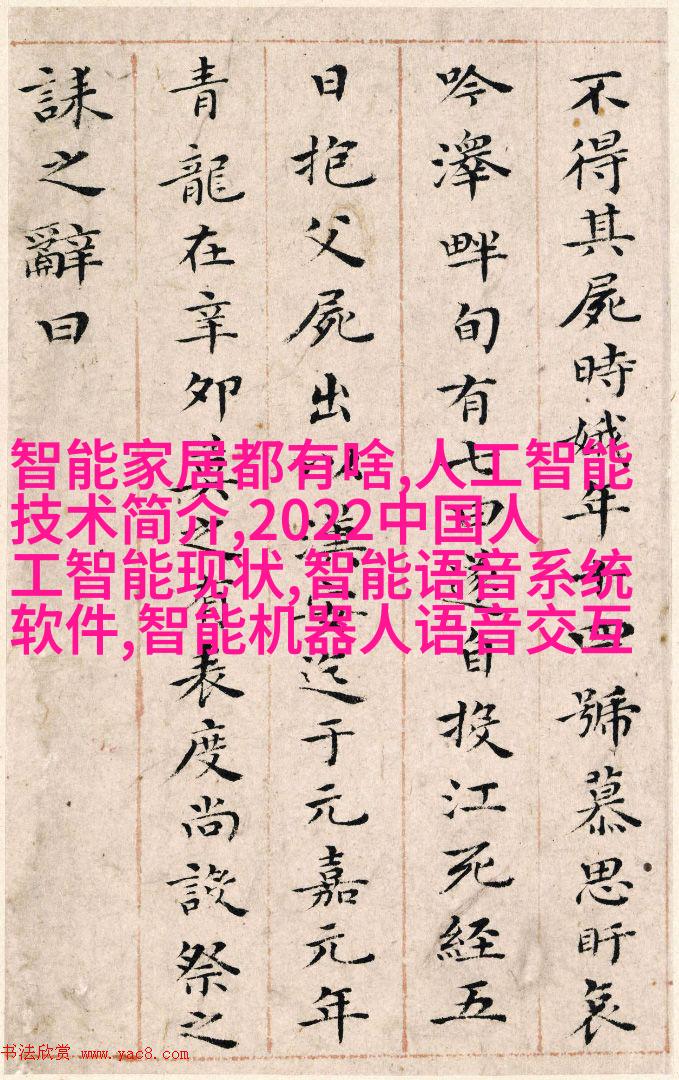 不得其屍時娥年十四號慕思盱哀
吟澤畔旬有七日遂自投江死經五
日抱父屍出以漢安迄于元嘉元年
青龍在辛卯莫之有表度尚設祭之
誄之辭曰
智能家居都有啥,人工智能
技术简介,2022中国人
工智能现状,智能语音系统
软件,智能机器人语音交互
书法欣赏 www.yac8.com